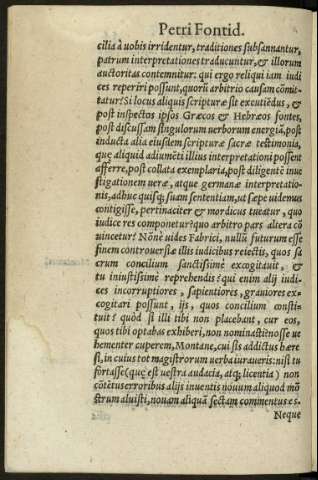 Petri Fontid.
cilia à uobis irridentur, traditiones subsannantur,
patrum interpretationes traducuntur, & illorum
auctoritas contemnitur: qui ergo reliqui iam iudi
ces reperiri possunt, quorū arbitrio causam cōmit-
tatur? Si locus aliquis scripturæ sit excutiēdus, &
post inspectos ipsos Græcos & Hebræos fontes,
post discussam singulorum uerborum energiā, post
inducta alia eiusdem scripturæ sacræ testimonia,
quę aliquid adiumēti illius interpretationi possent
afferre, post collata exemplaria, post diligentē inue
stigationem ueræ, atque germanæ interpretatio-
nis, adhuc quisq; suam sententiam, ut sæpe uidemus
contigisse, pertinaciter & mordicus tueatur, quo
iudice res componetur? quo arbitro pars altera cō
uincetur? Nōne uides Fabrici, nullū futurum esse
finem controuersiæ illis iudicibus reiectis, quos sa
crum concilium sanctissimè excogitauit, &
tu iniustissimè reprehendis? qui enim alij iudi-
ces incorruptiores, sapientiores, grauiores ex-
cogitari possunt, ijs, quos concilium consti-
tuit? quòd si illi tibi non placebant, cur eos,
quos tibi optabas exhiberi, non nominasti? nosse ue
hementer cuperem, Montane, cui sis addictus hære
si, in cuius tot magistrorum uerba iuraueris: nisi tu
fortasse (quę est uestra audacia, atq; licentia) non
cōtētus erroribus alijs inuentis nouum aliquod mō
strum aluisti, nouam aliquā sectam commentus es.
Neque